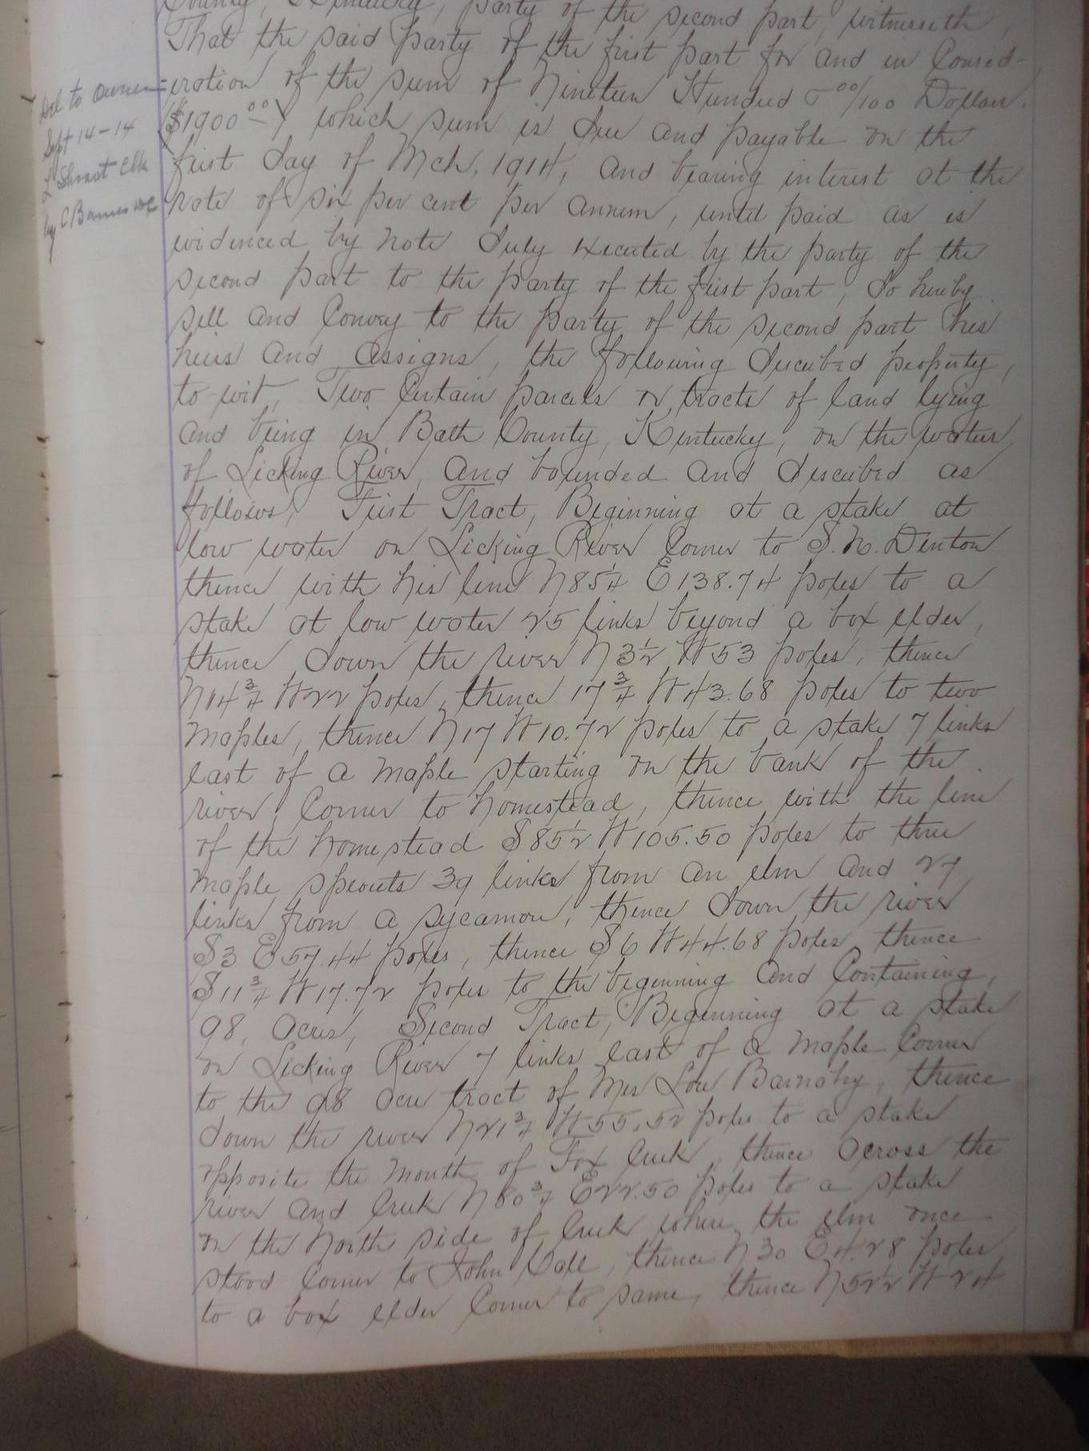 County, Kentucky, party of the second part, witnesseth,
That the said party of the first part for and in Consid-
eration of the sum of Nineteen Hundred & 00/100 Dollars.
($1900 00) which sum is due and payable on the
first day of Mch, 1914, and bearing interest at the
rate of six per cent per annum, until paid as is
evidenced by note duly executed by the party of the
second part to the party of the first part, do hereby
sell and Convey to the party of the second part his
heirs and assigns, the following described property,
to-wit, Two Certain parcels or tracts of land lying
and being in Bath County, Kentucky, on the waters
of Licking River, and bounded and described as
follows; First Tract, Beginning at a stake at
low water on Licking River Corner to S. N. Denton
thence with his line N85 1/4 E138.74 poles to a
stake at low water 25 links beyond a box elder,
thence down the river N3 1/2 W53 poles, thence
N14 3/4 W22 poles, thence 17 3/4 W43.68 poles to two
maples, thence N17 W10.72 poles to a stake 7 links
east of a maple starting on the bank of the
river, Corner to homestead, thence with the line
of the homestead S85 1/2 W105.50 poles to three
maple sprouts 39 links from an elm and 27
links from a sycamore, thence down the river
S3 E57.44 poles, thence S6 W44.68 poles, thence
S11 3/4 W17.72 poles to the beginning and Containing,
98, acres, Second Tract, Beginning at a stake
on Licking River 7 links east of a maple Corner
to the 98 acre tract of Mrs Lou Barnaby, thence
down the river N21 3/4 W55.52 poles to a stake
opposite the mouth of Fox Creek, thence across the
river and Creek N80 3/4 E22.50 poles to a stake
on the north side of Creek where the elm once
stood Corner to John thence N30 E4.28 poles
to a box elder Corner to same, thence N52 1/2 W24
Del to owner
Sept 14-14
Clk
by C Barnes DC